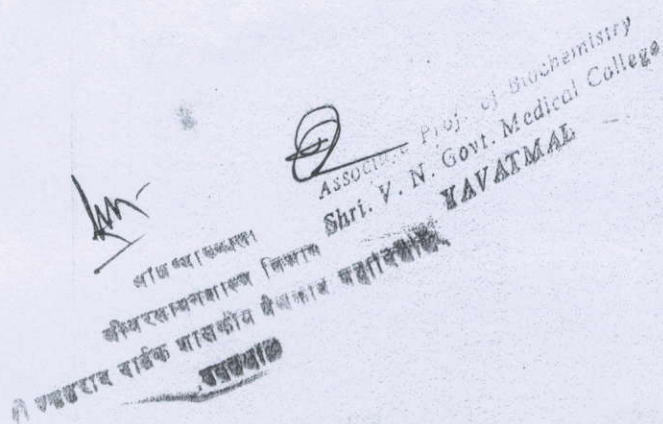 Associate Prof. of Biochemistry
Shri. V. N. Govt. Medical College
YAVATMAL
जीवरसायनशास्त्र विभाग
श्री वसंतराव नाईक शासकीय वैद्यकीय महाविद्यालय,
यवतमाळ